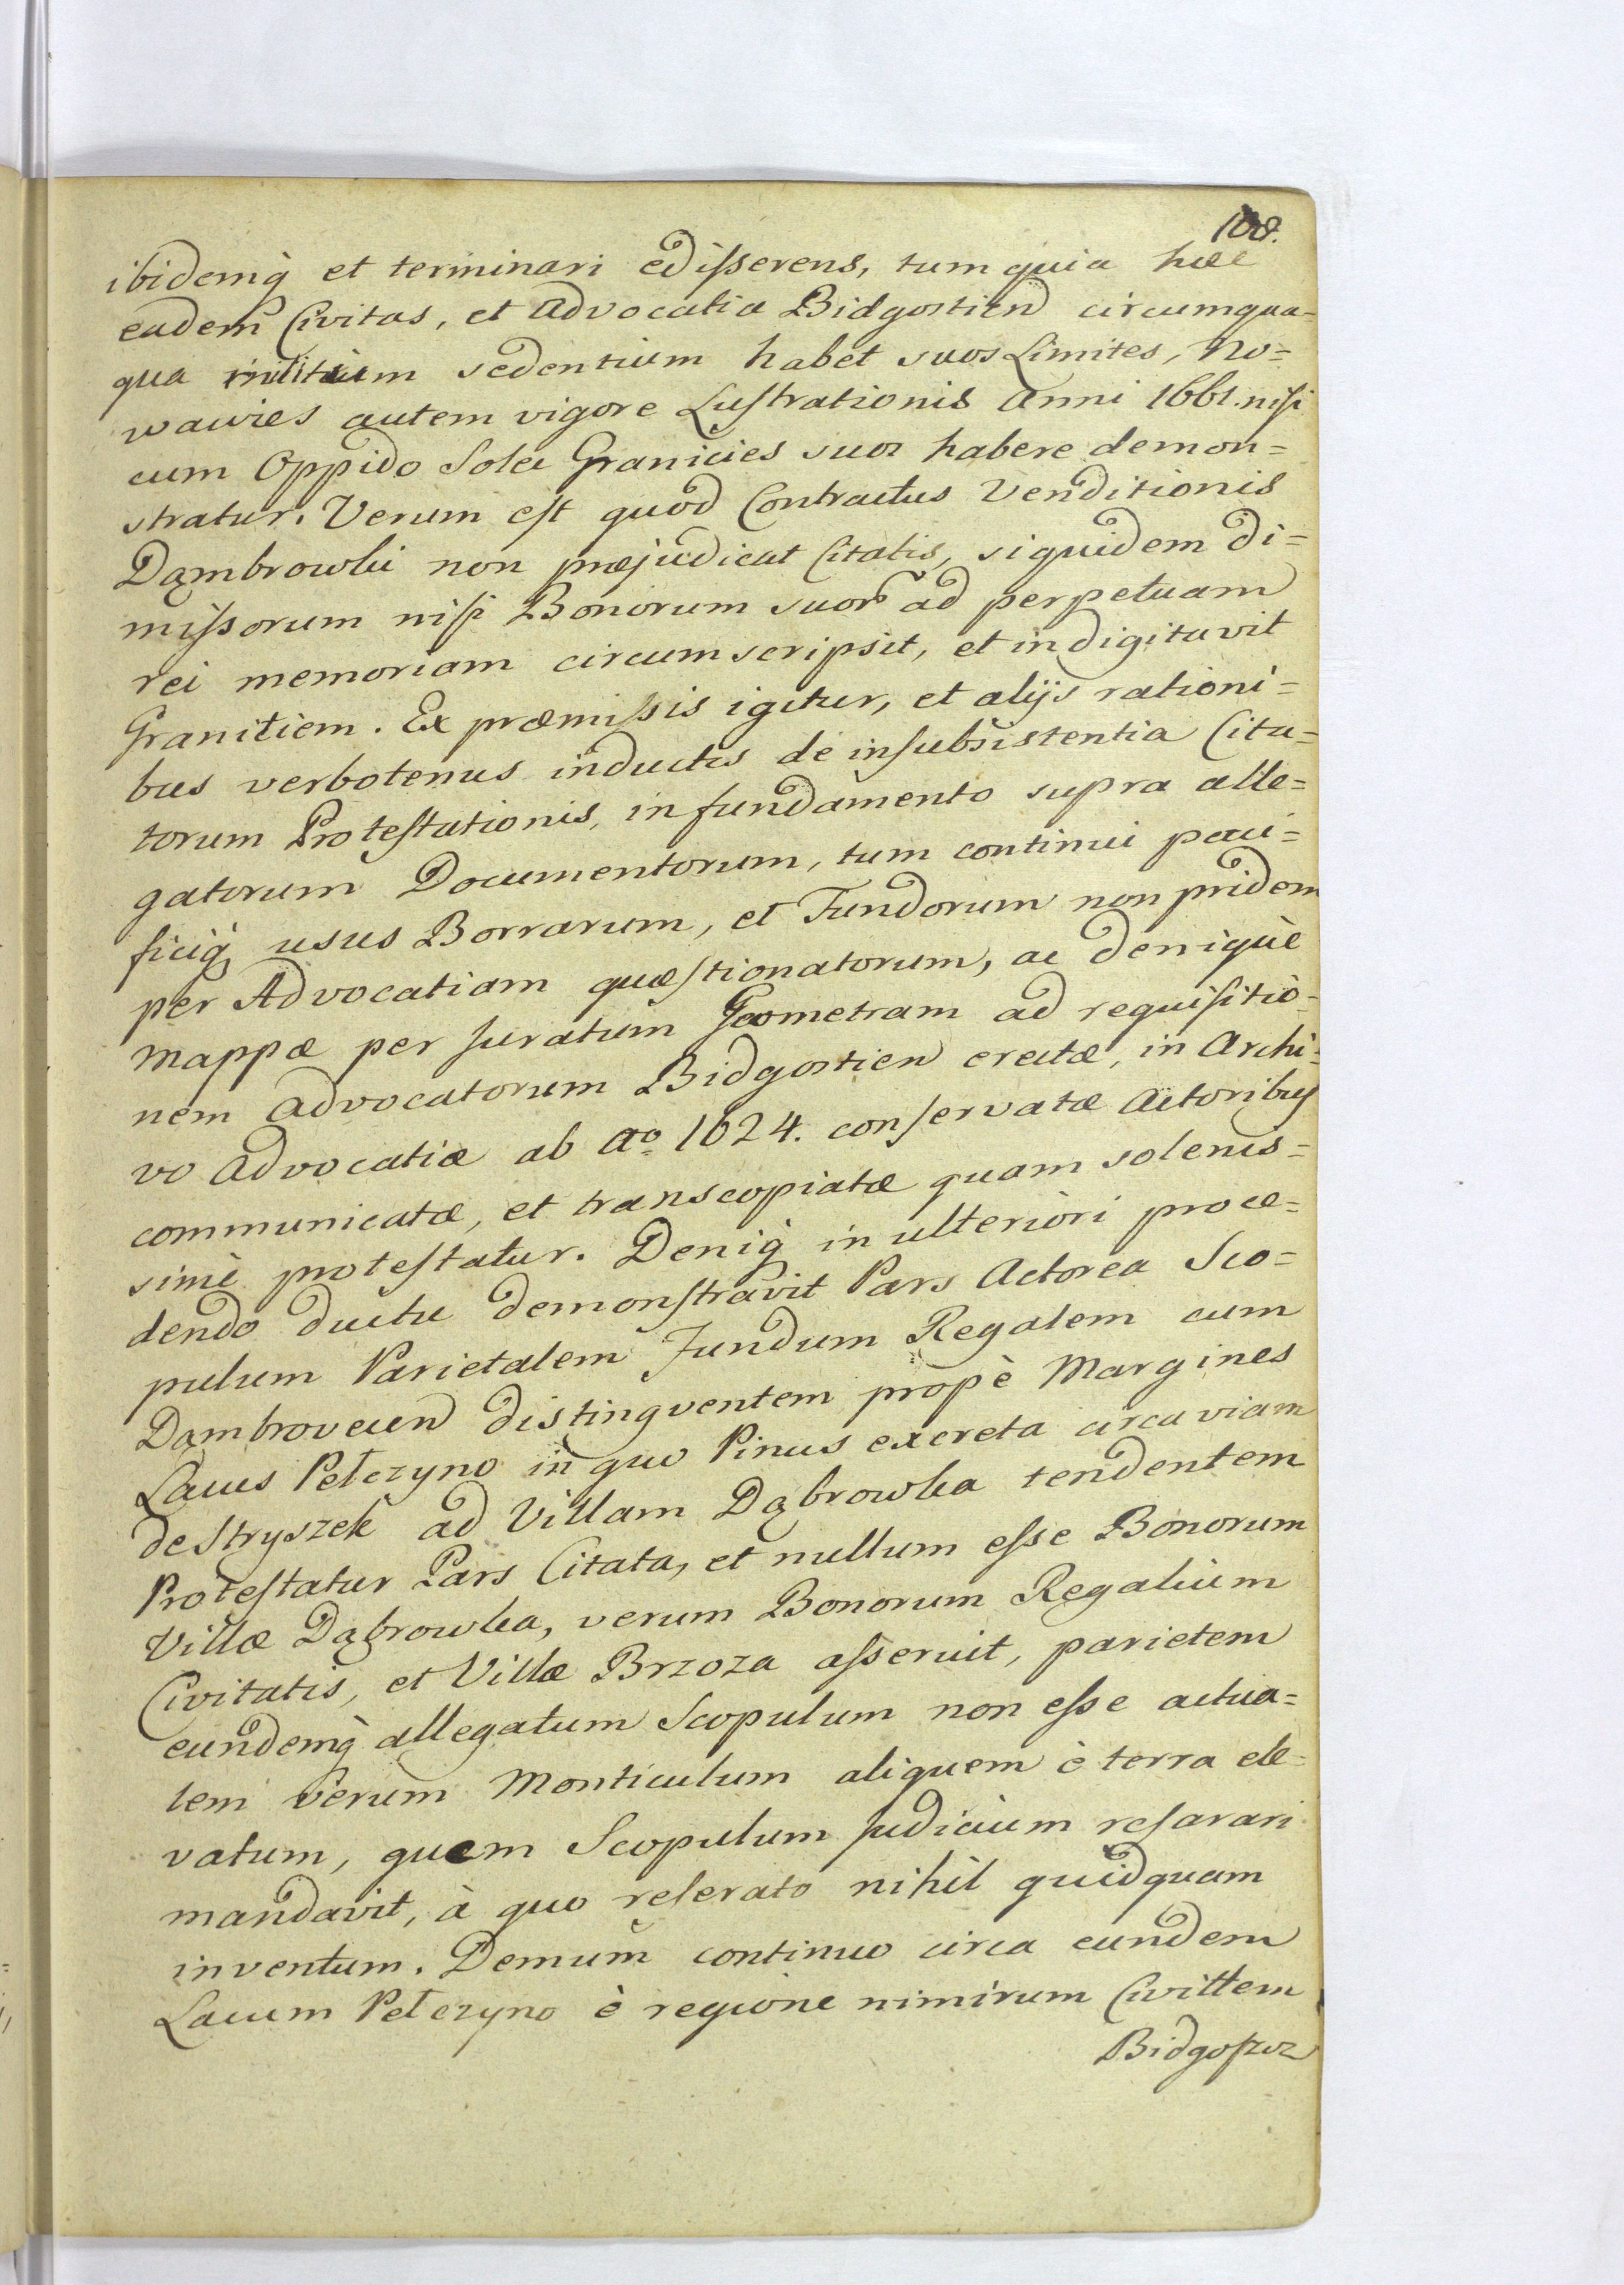 108.
ibidemq̀ et terminari edisserens, tum quia hæc
eadem Civitas, et Advocatia Bidgostien circumqua-
qua militum sedentium habet suos Limites, No=
wawies autem vigore Lustrationis Anni 1661. nisi
cum Oppido Solec Granicies suos habere demon=
stratur. Verum est quod Contractus Venditionis
Dąmbrowki non præjudicat Citatis, siquidem di=
missorum nisi Bonorum suor ad perpetuam
rei memoriam circumscripsit, et indigitavit
Granitiem. Ex præmissis igitur, et alijs rationi=
bus verbotenus inductis de insubsistentia Cita=
torum Protestationis, in fundamento supra alle=
gatorum Documentorum, tum continui paci=
ficiq̀ usus Borrarum, et Fundorum non pridem
per Advocatiam quæstionatorum, ac deniquè
Mappæ per Juratum Geometram ad requisitio=
nem Advocatorum Bidgostien erectæ, in Archi=
vo Advocatiæ ab Ao 1624. conservatæ Actoribus
communicatæ, et transcopiatæ quam solenis=
simè protestatur. Deniq̀ in ulteriori proce=
dendo ductu demonstravit Pars Actorea Sco=
pulum Parietalem Fundum Regalem cum
Dąmbrovecen distingventem propè Margines
Lacus Petczyno in quo Pinus excreta circa viam
de Stryszek ad Villam Dąbrowka tendentem
Protestatur Pars Citata, et nullum esse Bonorum
Villæ Dąbrowka, verum Bonorum Regalium
Civitatis, et Villæ Brzoza asseruit, parietem
eundemq̀ allegatum Scopulum non esse actua=
lem verum Monticulum aliquem è terra ele=
vatum, quem Scopulum Judicium resarari
mandavit, à quo reserato nihil quidquam
inventum. Demum continuo circa eundem
Lacum Petczyno è regione nimirum Civittem
Bidgoszcz